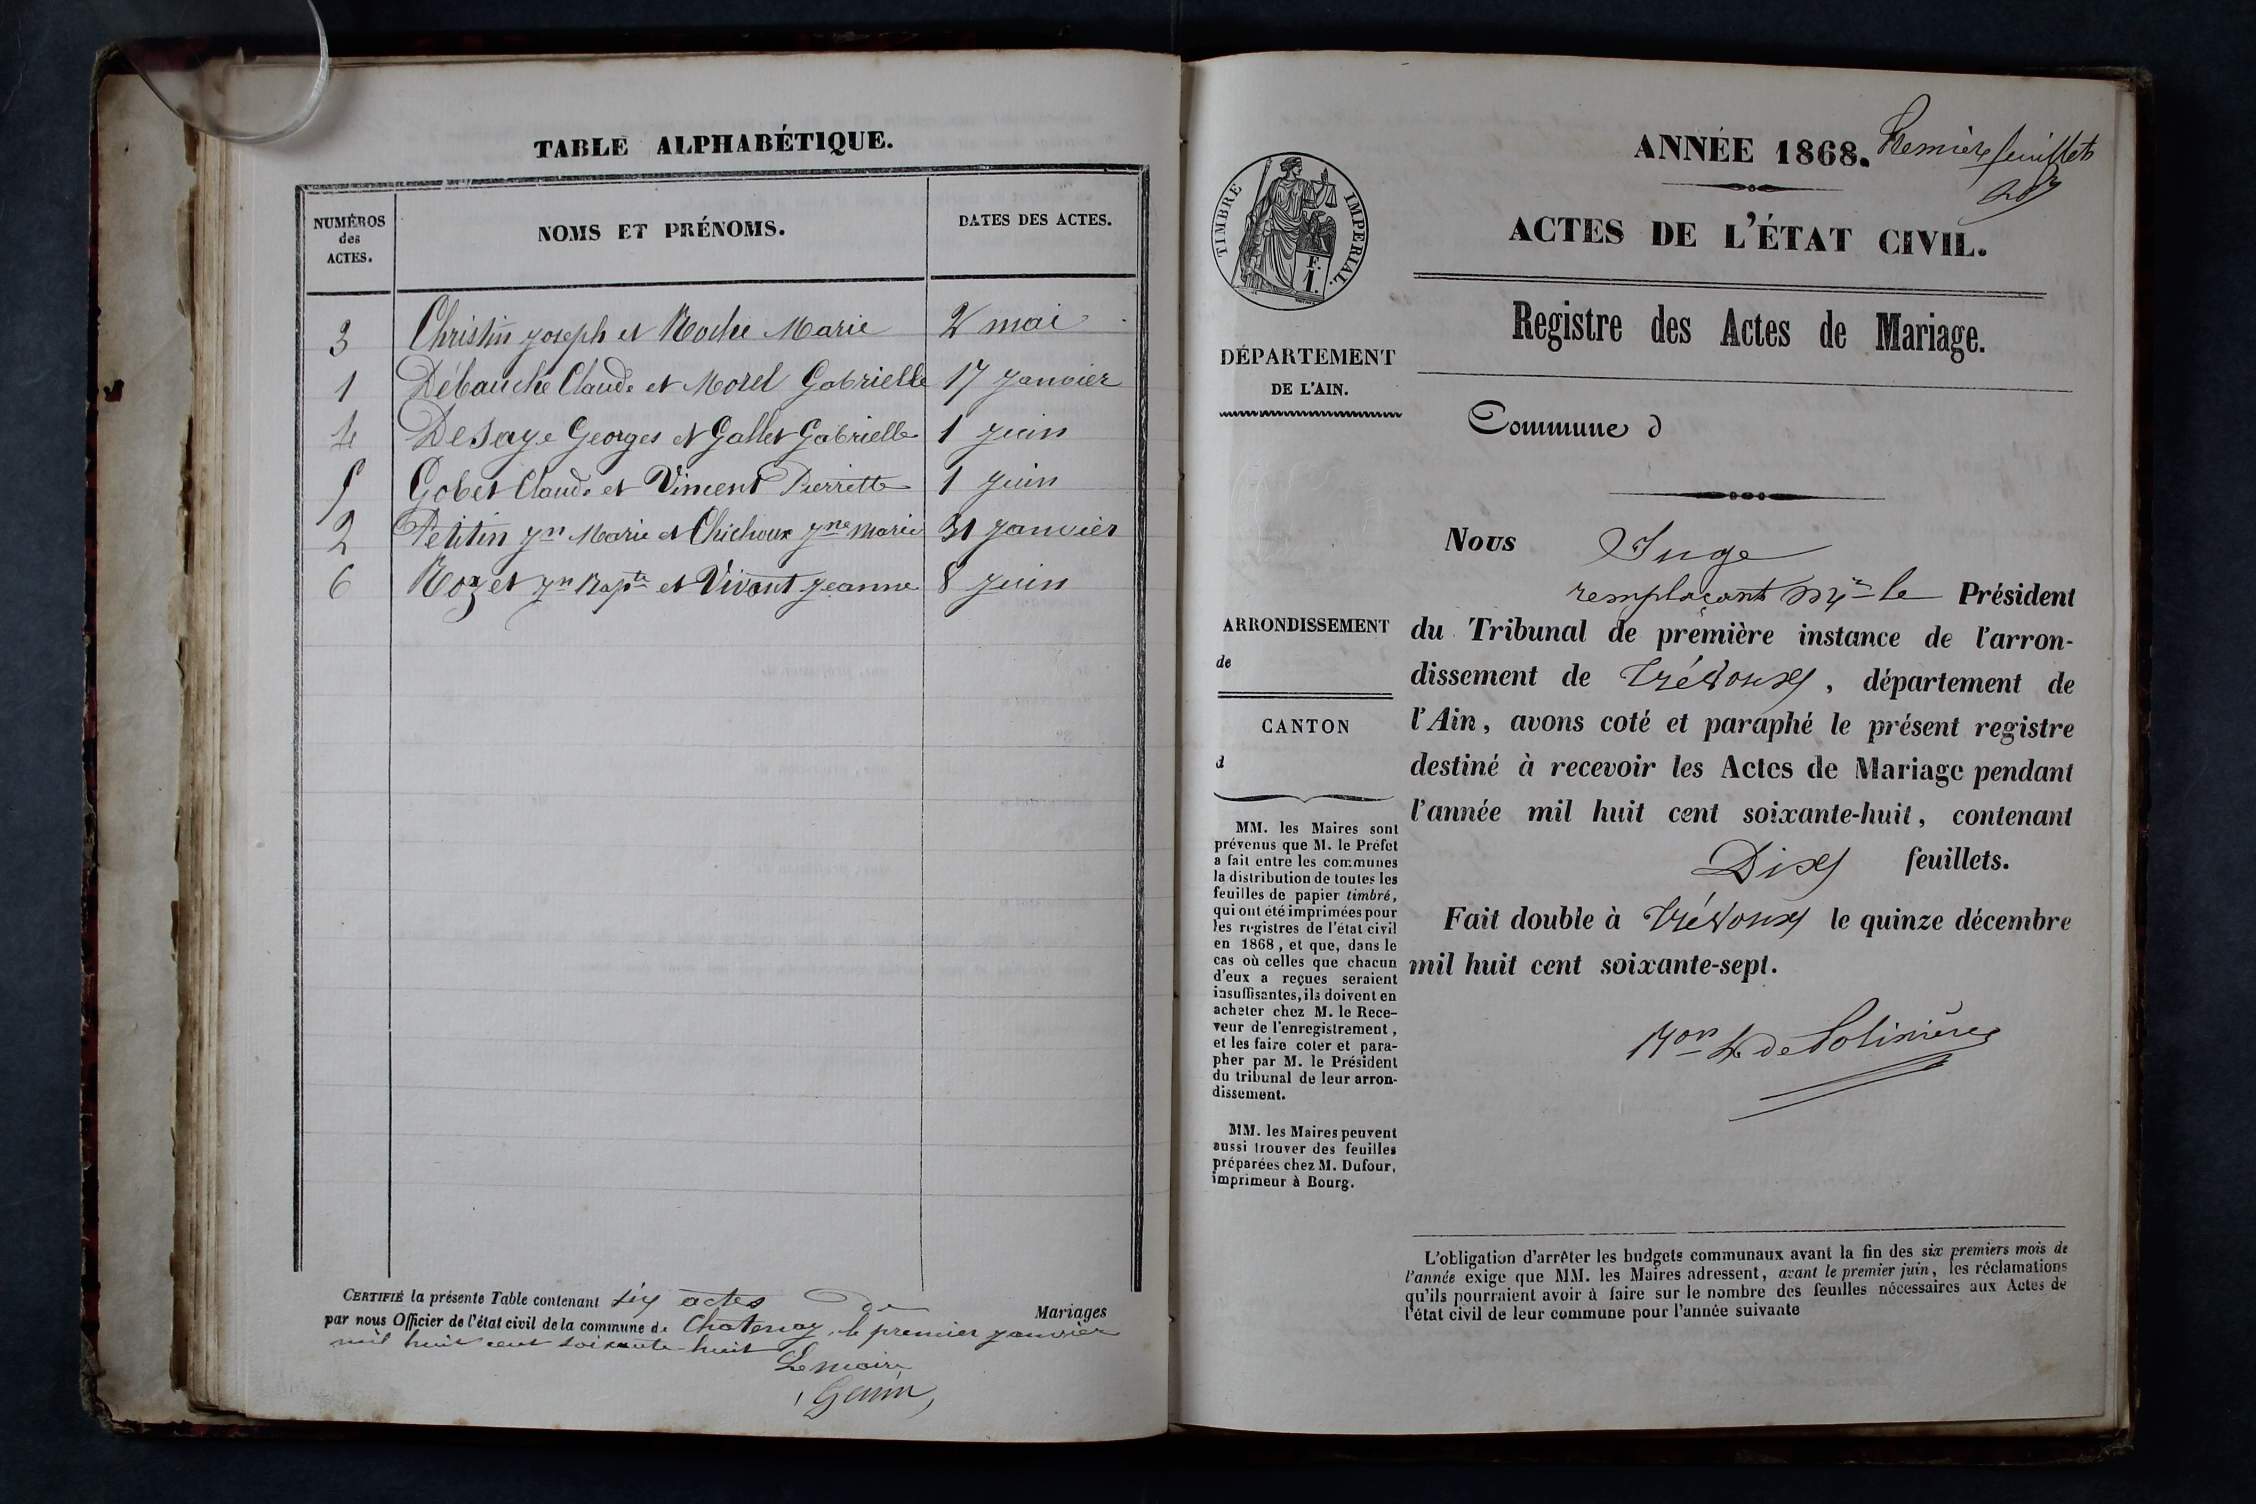 TABLE ALPHABÉTIQUE.
NUMÉROS des ACTES.
NOMS ET PRÉNOMS.
DATES DES ACTES.
3 Christin Joseph et Roche Marie 2 mai
1 Débauche Claude et Morel Gabrielle 17 Janvier
4 Desaye Georges et Gallet Gabrielle 1 Juin
5 Gobet Claude et Vincent Pierrette 1 Juin
2 Petitin Jn Marie et Chichoux Jne Marie 31 Janvier
6 Rozet Jn Bapte et Vivant Jeanne 8 Juin
CERTIFIÉ la présente Table contenant six actes de Mariages
par nous Officier de l'état civil de la commune de Chatenay, le premier Janvier
mil huit cent soixante-huit
Le maire
Genin
ANNÉE 1868. Premier feuillet
ACTES DE L'ÉTAT CIVIL.
Registre des Actes de Mariage.
TIMBRE IMPERIAL.
F.
1.
DÉPARTEMENT
DE L'AIN.
ARRONDISSEMENT
de
CANTON
d
MM. les Maires sont
prévenus que M. le Préfet
a fait entre les communes
la distribution de toutes les
feuilles de papier timbré,
qui ont été imprimées pour
les registres de l'état civil
en 1868, et que, dans le
cas où celles que chacun
d'eux a reçues seraient
insuffisantes, ils doivent en
acheter chez M. le Rece-
veur de l'enregistrement,
et les faire coter et para-
pher par M. le Président
du tribunal de leur arron-
dissement.
MM. les Maires peuvent
aussi trouver des feuilles
préparées chez M. Dufour,
imprimeur à Bourg.
Commune d
Nous Juge
remplaçant Mr le Président
du Tribunal de première instance de l'arron-
dissement de Trévoux, département de
l'Ain, avons coté et paraphé le présent registre
destiné à recevoir les Actes de Mariage pendant
l'année mil huit cent soixante-huit, contenant
Dix feuillets.
Fait double à Trévoux le quinze décembre
mil huit cent soixante-sept.
L'obligation d'arrêter les budgets communaux avant la fin des six premiers mois de
l'année exige que MM. les Maires adressent, avant le premier juin, les réclamations
qu'ils pourraient avoir à faire sur le nombre des feuilles nécessaires aux Actes de
l'état civil de leur commune pour l'année suivante